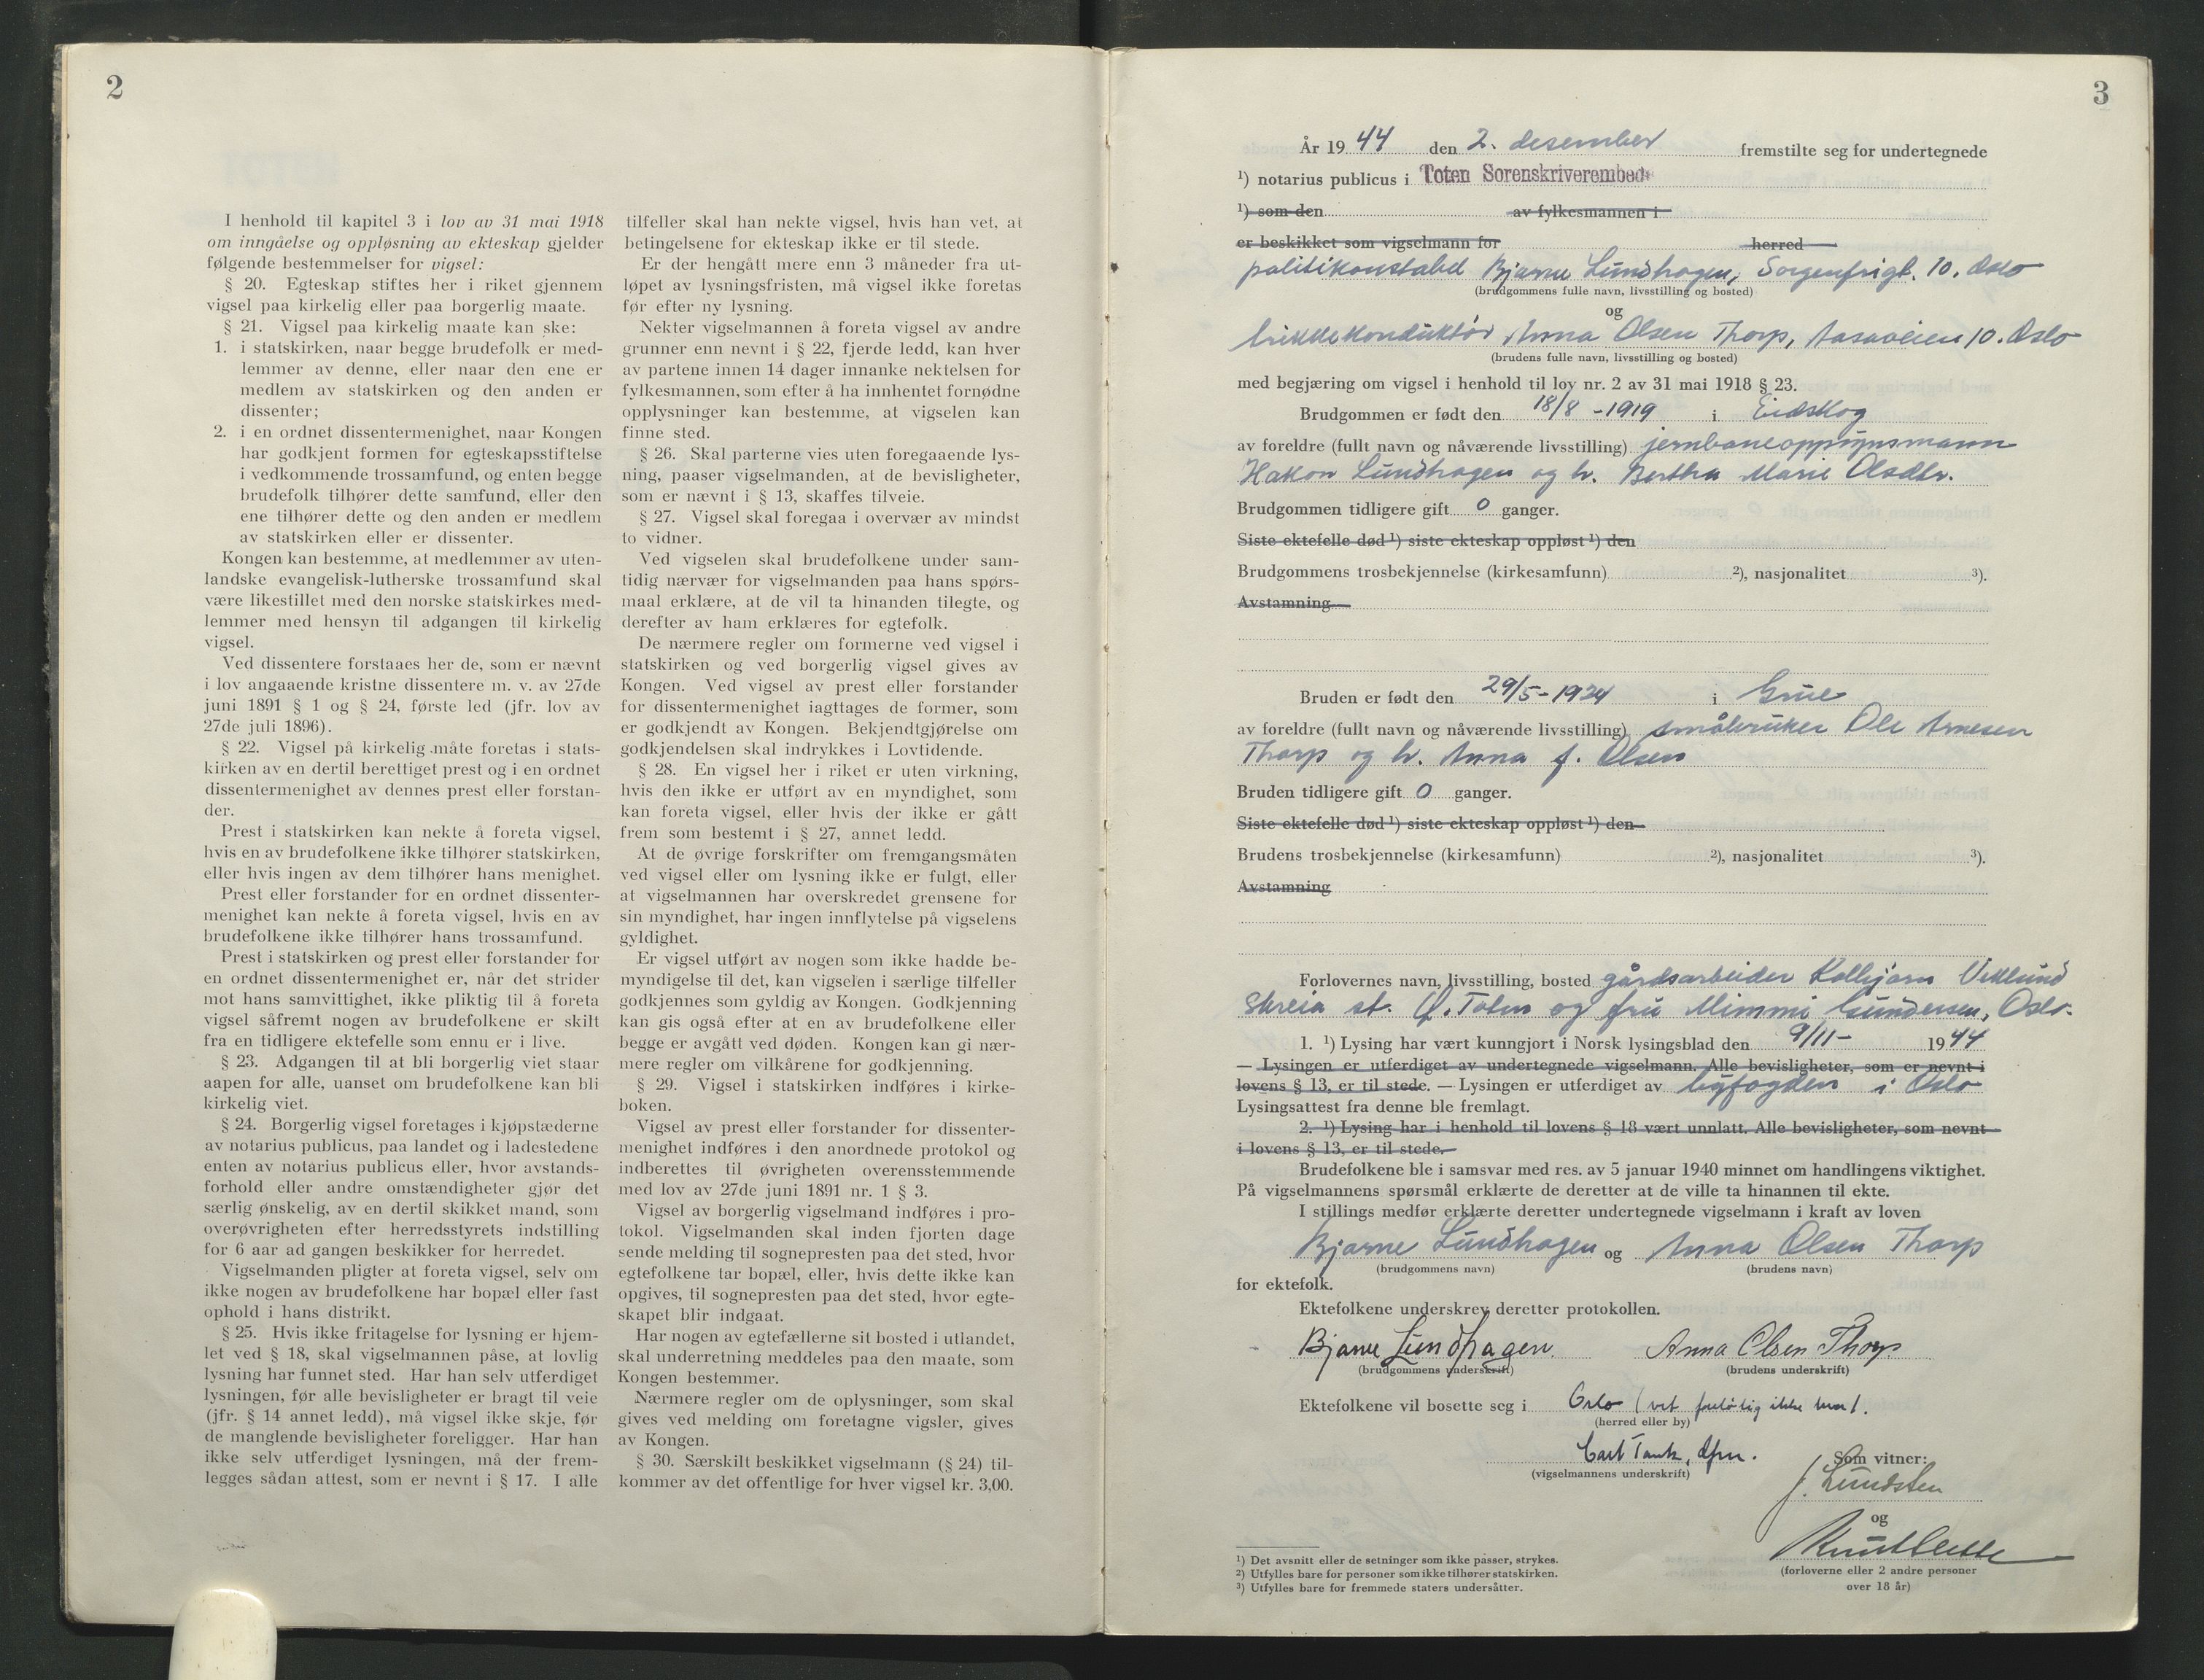 2
I henhold til kapitel 3 i lov av 31 mai 1918
om inngåelse og oppløsning av ekteskap gjelder
følgende bestemmelser for vigsel:
§ 20. Egteskap stiftes her i riket gjennem
vigsel paa kirkelig eller paa borgerlig maate.
§ 21. Vigsel paa kirkelig maate kan ske:
1. i statskirken, naar begge brudefolk er med-
lemmer av denne, eller naar den ene er
medlem av statskirken og den anden er
dissenter;
2. i en ordnet dissentermenighet, naar Kongen
har godkjent formen for egteskapsstiftelse
i vedkommende trossamfund, og enten begge
brudefolk tilhører dette samfund, eller den
ene tilhører dette og den anden er medlem
av statskirken eller er dissenter.
Kongen kan bestemme, at medlemmer av uten-
landske evangelisk-lutherske trossamfund skal
være likestillet med den norske statskirkes med-
lemmer med hensyn til adgangen til kirkelig
vigsel.
Ved dissentere forstaaes her de, som er nævnt
i lov angaaende kristne dissentere m. v. av 27de
juni 1891 § 1 og § 24, første led (jfr. lov av
27de juli 1896).
§ 22. Vigsel på kirkelig måte foretas i stats-
kirken av en dertil berettiget prest og i en ordnet
dissentermenighet av dennes prest eller forstan-
der.
Prest i statskirken kan nekte å foreta vigsel,
hvis en av brudefolkene ikke tilhører statskirken,
eller hvis ingen av dem tilhører hans menighet.
Prest eller forstander for en ordnet dissenter-
menighet kan nekte å foreta vigsel, hvis en av
brudefolkene ikke tilhører hans trossamfund.
Prest i statskirken og prest eller forstander for
en ordnet dissentermenighet er, når det strider
mot hans samvittighet, ikke pliktig til å foreta
vigsel såfremt nogen av brudefolkene er skilt
fra en tidligere ektefelle som ennu er i live.
§ 23. Adgangen til at bli borgerlig viet staar
aapen for alle, uanset om brudefolkene kan bli
kirkelig viet.
§ 24. Borgerlig vigsel foretages i kjøpstæderne
av notarius publicus, paa landet og i ladestedene
enten av notarius publicus eller, hvor avstands-
forhold eller andre omstændigheter gjør det
særlig ønskelig, av en dertil skikket mand, som
overøvrigheten efter herredsstyrets indstilling
for 6 aar ad gangen beskikker for herredet.
Vigselmanden pligter at foreta vigsel, selv om
ikke nogen av brudefolkene har bopæl eller fast
ophold i hans distrikt.
§ 25. Hvis ikke fritagelse for lysning er hjem-
let ved § 18, skal vigselmannen påse, at lovlig
lysning har funnet sted. Har han selv utferdiget
lysningen, før alle bevisligheter er bragt til veie
(jfr. § 14 annet ledd), må vigsel ikke skje, før
de manglende bevisligheter foreligger. Har han
ikke selv utferdiget lysningen, må der frem-
legges sådan attest, som er nevnt i § 17. I alle
tilfeller skal han nekte vigsel, hvis han vet, at
betingelsene for ekteskap ikke er til stede.
Er der hengått mere enn 3 måneder fra ut-
løpet av lysningsfristen, må vigsel ikke foretas
før efter ny lysning.
Nekter vigselmannen å foreta vigsel av andre
grunner enn nevnt i § 22, fjerde ledd, kan hver
av partene innen 14 dager innanke nektelsen for
fylkesmannen, som efter å ha innhentet fornødne
opplysninger kan bestemme, at vigselen kan
finne sted.
§ 26. Skal parterne vies uten foregaaende lys-
ning, paaser vigselmanden, at de bevisligheter,
som er nævnt i § 13, skaffes tilveie.
§ 27. Vigsel skal foregaa i overvær av mindst
to vidner.
Ved vigselen skal brudefolkene under sam-
tidig nærvær for vigselmanden paa hans spørs-
maal erklære, at de vil ta hinanden tilegte, og
derefter av ham erklæres for egtefolk.
De nærmere regler om formerne ved vigsel i
statskirken og ved borgerlig vigsel gives av
Kongen. Ved vigsel av prest eller forstander
for dissentermenighet iagttages de former, som
er godkjendt av Kongen. Bekjendtgjørelse om
godkjendelsen skal indrykkes i Lovtidende.
§ 28. En vigsel her i riket er uten virkning,
hvis den ikke er utført av en myndighet, som
kan foreta vigsel, eller hvis der ikke er gått
frem som bestemt i § 27, annet ledd.
At de øvrige forskrifter om fremgangsmåten
ved vigsel eller om lysning ikke er fulgt, eller
at vigselmannen har overskredet grensene for
sin myndighet, har ingen innflytelse på vigselens
gyldighet.
Er vigsel utført av nogen som ikke hadde be-
myndigelse til det, kan vigselen i særlige tilfeller
godkjennes som gyldig av Kongen. Godkjenning
kan gis også efter at en av brudefolkene eller
begge er avgått ved døden. Kongen kan gi nær-
mere regler om vilkårene for godkjenning.
§ 29. Vigsel i statskirken indføres i kirke-
boken.
Vigsel av prest eller forstander for dissenter-
menighet indføres i den anordnede protokol og
indberettes til øvrigheten overensstemmende
med lov av 27de juni 1891 nr. 1 § 3.
Vigsel av borgerlig vigselmand indføres i pro-
tokol. Vigselmanden skal inden fjorten dage
sende melding til sognepresten paa det sted, hvor
egtefolkene tar bopæl, eller, hvis dette ikke kan
opgives, til sognepresten paa det sted, hvor egte-
skapet blir indgaat.
Har nogen av egtefællerne sit bosted i utlandet,
skal underretning meddeles paa den maate, som
Kongen bestemmer.
Nærmere regler om de oplysninger, som skal
gives ved melding om foretagne vigsler, gives
av Kongen.
§ 30. Særskilt beskikket vigselmann (§ 24) til-
kommer av det offentlige for hver vigsel kr. 3,00.
3
År 1944 den 2. desember fremstilte seg for undertegnede
¹) notarius publicus i Toten Sorenskriverembede
¹) som den av fylkesmannen i
er beskikket som vigselmann for herred
politikonstabel Bjarne Lundhagen, Sorgenfrigt. 10. Oslo
(brudgommens fulle navn, livsstilling og bosted)
og
trikkekonduktør Anna Olsen Thorp, Aasaveien 10. Oslo
(brudens fulle navn, livsstilling og bosted)
med begjæring om vigsel i henhold til lov nr. 2 av 31 mai 1918 § 23.
Brudgommen er født den 18/8 - 1919 i Eidskog
av foreldre (fullt navn og nåværende livsstilling) jernbaneoppsynsmann
Hakon Lundhagen og h. Bertha Marie Olsdtr.
Brudgommen tidligere gift 0 ganger.
Siste ektefelle død ¹) siste ekteskap oppløst ¹) den
Brudgommens trosbekjennelse (kirkesamfunn) ²), nasjonalitet ³).
Avstamning
Bruden er født den 29/5 - 1924 i Grue
av foreldre (fullt navn og nåværende livsstilling) småbruker Ole Arnesen
Thorp og h. Anna f. Olsen
Bruden tidligere gift 0 ganger.
Siste ektefelle død ¹) siste ekteskap oppløst ¹) den
Brudens trosbekjennelse (kirkesamfunn) ²), nasjonalitet ³).
Avstamning
Forlovernes navn, livsstilling, bosted gårdsarbeider Kolbjørn Viklund
Skreia st. Ø. Toten og fru Mimmi Gundersen, Oslo.
1. ¹) Lysing har vært kunngjort i Norsk lysingsblad den 9/11 - 1944
— Lysingen er utferdiget av undertegnede vigselmann. Alle bevisligheter, som er nevnt i
lovens § 13, er til stede. — Lysingen er utferdiget av byfogden i Oslo
Lysingsattest fra denne ble fremlagt.
2. ¹) Lysing har i henhold til lovens § 18 vært unnlatt. Alle bevisligheter, som nevnt
i lovens § 13, er til stede.
Brudefolkene ble i samsvar med res. av 5 januar 1940 minnet om handlingens viktighet.
På vigselmannens spørsmål erklærte de deretter at de ville ta hinannen til ekte.
I stillings medfør erklærte deretter undertegnede vigselmann i kraft av loven
Bjarne Lundhagen og Anna Olsen Thorp
(brudgommens navn) (brudens navn)
for ektefolk.
Ektefolkene underskrev deretter protokollen.
Bjarne Lundhagen. Anna Olsen Thorp
(brudgommens underskrift) (brudens underskrift)
Ektefolkene vil bosette seg i Oslo (vet foreløbig ikke hvor).
(herred eller by)
Carl Tank, dfm.
(vigselmannens underskrift)
Som vitner:
J. Lundsten
og
(forloverne eller 2 andre personer
over 18 år)
¹) Det avsnitt eller de setninger som ikke passer, strykes.
²) Utfylles bare for personer som ikke tilhører statskirken.
³) Utfylles bare for fremmede staters undersåtter.